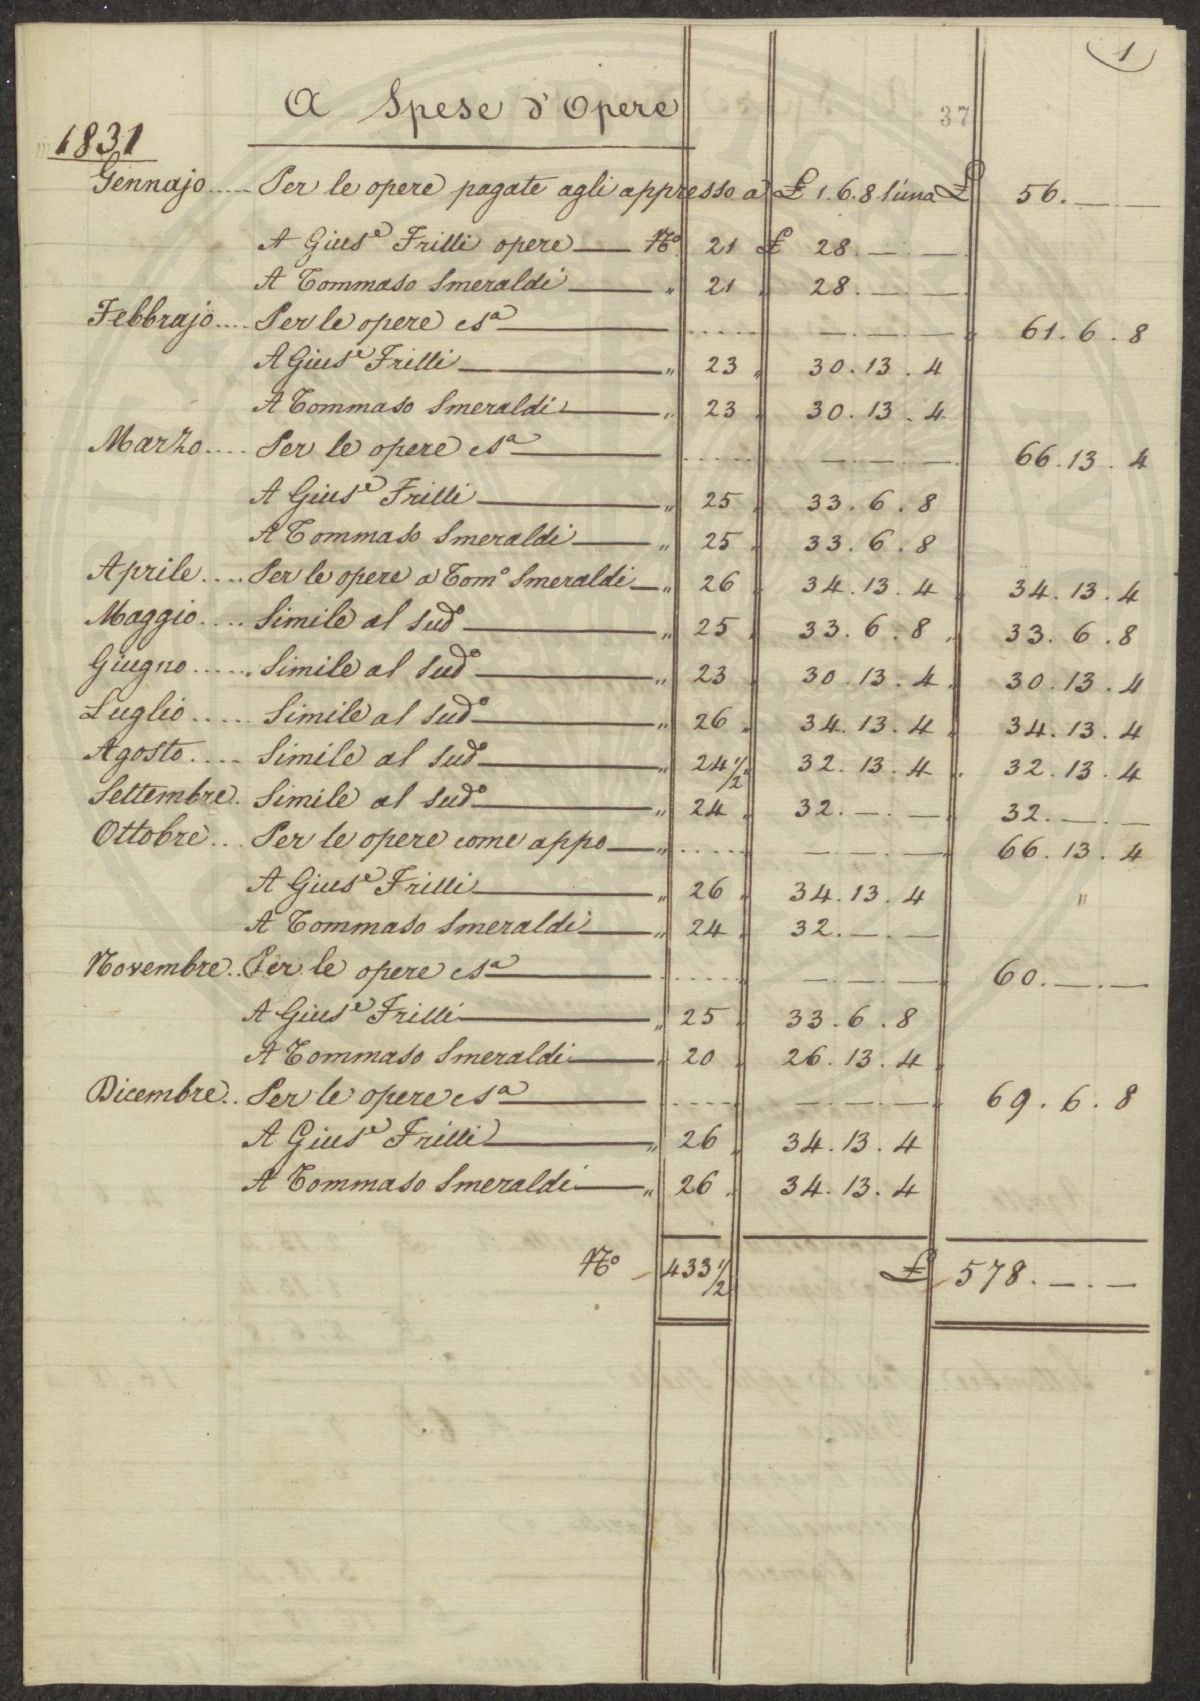 1
A Spese d'Opere
37
1831
Gennajo..... Per le opere pagate agli appresso a £ 1.6.8 l'una £ 56.—.—
A Gius.e Frilli opere — N.o 21 £ 28.—.—
A Tommaso Smeraldi — " 21 " 28.—.—
Febbrajo.... Per le opere c s.a — ..... —.—.— " 61.6.8
A Gius.e Frilli — " 23 " 30.13.4
A Tommaso Smeraldi — " 23 " 30.13.4
Marzo.... Per le opere c s.a — ..... —.—.— 66.13.4
A Gius.e Frilli — " 25 " 33.6.8
A Tommaso Smeraldi — " 25 " 33.6.8
Aprile.... Per le opere a Tom.o Smeraldi — " 26 " 34.13.4 " 34.13.4
Maggio.... Simile al sud.o — " 25 " 33.6.8 " 33.6.8
Giugno...... Simile al sud.o — " 23 30.13.4 " 30.13.4
Luglio..... Simile al sud.o — " 26 " 34.13.4 " 34.13.4
Agosto.... Simile al sud.o — " 24 1/2 " 32.13.4 " 32.13.4
Settembre. Simile al sud.o — " 24 " 32.—.— 32.—.—
Ottobre... Per le opere come appo — " ..... —.—.— " 66.13.4
A Gius.e Frilli — " 26 " 34.13.4 "
A Tommaso Smeraldi — " 24 " 32.—.—
Novembre.. Per le opere c s.a — ..... —.—.— " 60.—.—
A Gius.e Frilli — " 25 " 33.6.8
A Tommaso Smeraldi — " 20 " 26.13.4 "
Dicembre.. Per le opere c s.a — ..... —.—.— " 69.6.8
A Gius.e Frilli — " 26 " 34.13.4
A Tommaso Smeraldi — " 26 " 34.13.4
N.o 433 1/2 £ 578.—.—